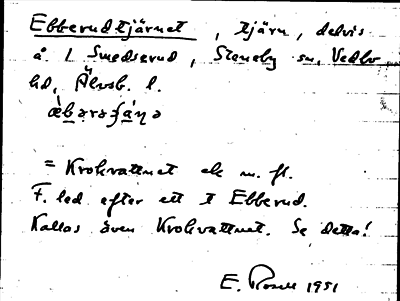 Ebberudtjärnet, tjärn, delvis
å 1 Smedserud, Steneby sn, Vedbo
hd, Älvsb. l.
= Krokvattnet ek m. fl.
F. led efter ett t Ebberud.
Kallas även Krokvattnet. Se detta!
E. Rosell 1951